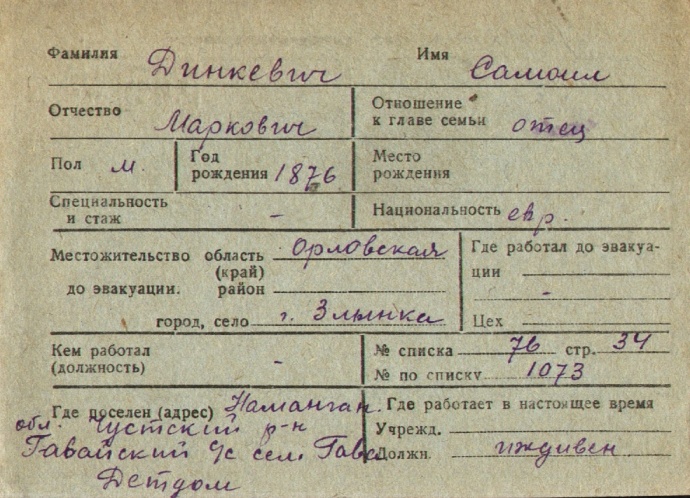 Фамилия Динкевич Имя Самоил
Отчество Маркович Отношение к главе семьи отец
Пол м. Год рождения 1876 Место рождения
Специальность и стаж - Национальность евр.
Местожительство область Орловская Где работал до эвакуа-
(край) ции
до эвакуации. район -
город, село г. Злынка Цех
Кем работал (должность) - № списка 76 стр. 34
№ по списку 1073
Где поселен (адрес) Наманган. Где работает в настоящее время
обл. Чустский р-н Учрежд.
Гавайский с/с сел. Гава Должн. иждивен
Детдом